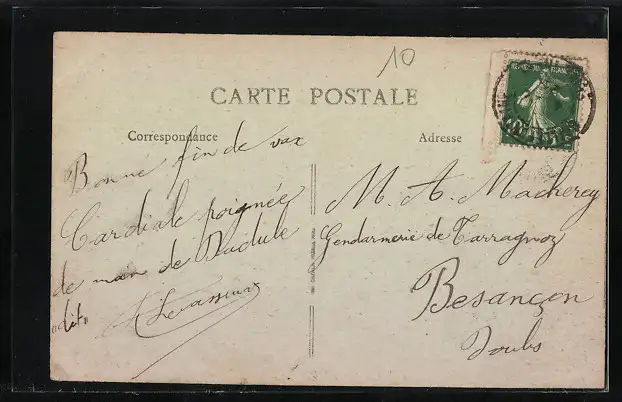 10
CARTE POSTALE
Correspondance
Adresse
Bonne fin de vax
Cardiale poignée
de main de Dudule
dit
M. A. Macherey
Gendarmerie de Tarragnoz
Besançon
Doubs